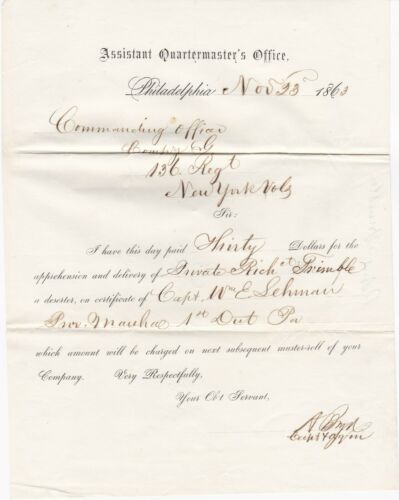 Assistant Quartermaster's Office,
Philadelphia Nov 23 1863
Commanding Officer
Compy G
136 Regt
New York Vols
Sir:
I have this day paid Thirty Dollars for the
apprehension and delivery of Private Richd Trimble
a deserter, on certificate of Capt. Wm E Lehman
Prov. Marshal 1st Dist Pa
which amount will be charged on next subsequent muster-roll of your
Company. Very Respectfully,
Your Ob't Servant,
A Boyd
Capt & aqm